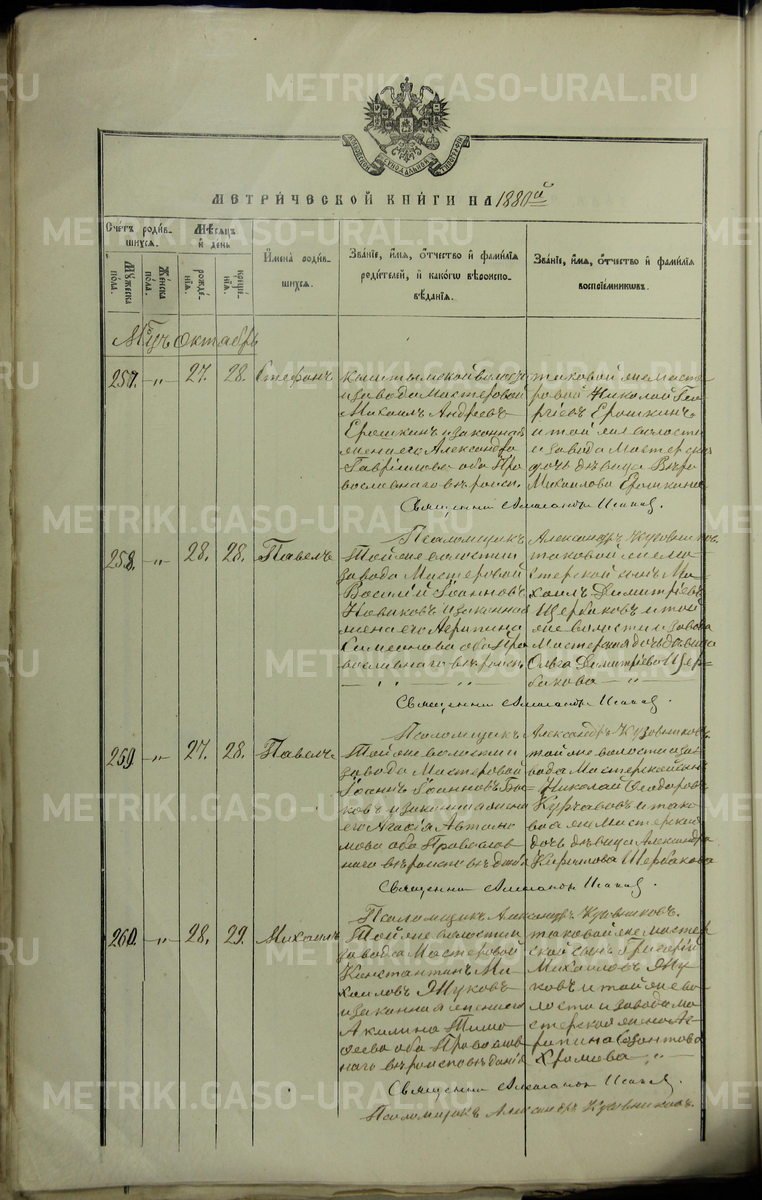 МЕТРИ́ЧЕСКОЙ КНИ́ГИ НА 1880й
Сче́тъ роди́вшихся.
Мѣ́сяцъ и҆ день
И҆мена̀ роди́вшихся.
Зва́нїе, и҆́мя, ѻ҆́тчество и҆ фами́лїя роди́телей, и҆ како́гѡ вѣроисповѣ́данїя.
Зва́нїе, и҆́мя, ѻ҆́тчество и҆ фами́лїя воспрїе́мникѡвъ.
Мꙋ́жеска по́ла.
Же́нска по́ла.
рожде́нїя.
креще́нїя.
Октябрь
257. -"- 27. 28. Стефанъ
Кыштымской волости
и завода Мастеровой
Михаилъ Андреевъ
Ерошкинъ и законная
жена его Александра
Гаврiилова оба Пра
вославнаго вѣроисп.
таковой же масте
ровой Николай Геор
гiевъ Ерошкинъ
и той же волости
и завода Мастерская
дочь дѣвица Вѣра
Михаилова Ерошкина
Священникъ
Псаломщикъ Александръ
258. -"- 28. 28. Павелъ
Той же волости и
завода Мастеровой
Василiй Iоанновъ
Новиковъ и законная
жена его Агрипина
Симеонова оба Пра
вославнаго вѣроисп.
таковой же ма
стерской сынъ Ми-
хаилъ Димитрiевъ
Щербаковъ и той
же волости и завода
Мастерская дочь дѣвица
Ольга Димитрiева Щер-
бакова -"-
Священникъ
Псаломщикъ Александръ
259. -"- 27. 28. Павелъ
Той же волости и
завода Мастеровой
Iоаннъ Iоанновъ
и законная жена
его Агафiя Автоно
мова оба Православ
наго вѣроисповѣданiя
той же волости и за-
вода Мастерской сынъ
Николай Ѳеодоровъ
и тако
вая же Мастерская
дочь дѣвица Александра
Кирилова Щербакова
Священникъ
Псаломщикъ Александръ
260. -"- 28. 29. Михаилъ
Той же волости и
завода Мастеровой
Константинъ Ми
хаиловъ Жуковъ
и законная жена его
Акилина Тимо
ѳеева оба Православ
наго вѣроисповѣданiя
таковой же мастер
ской сынъ Григорiй
Михаиловъ Жу
ковъ и той же во
лости и завода ма
стерская жена Аг
рипина
Хромова -"-
Священникъ
Псаломщикъ Александръ
METRIKI.GASO-URAL.RU